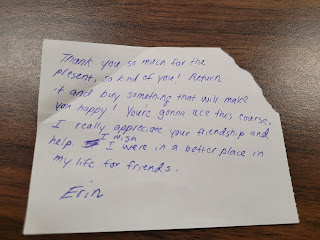 Thank you so much for the
present, so kind of you! Return
it and buy something that will make
you happy! You're gonna ace this course.
I really appreciate your friendship and
help. I wish I were in a better place in
my life for friends.
Erin